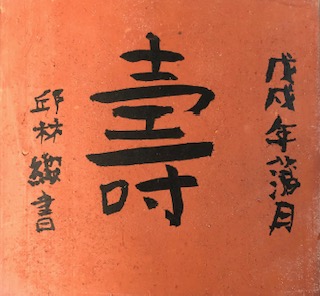 戊戌年月
壽
邱林書